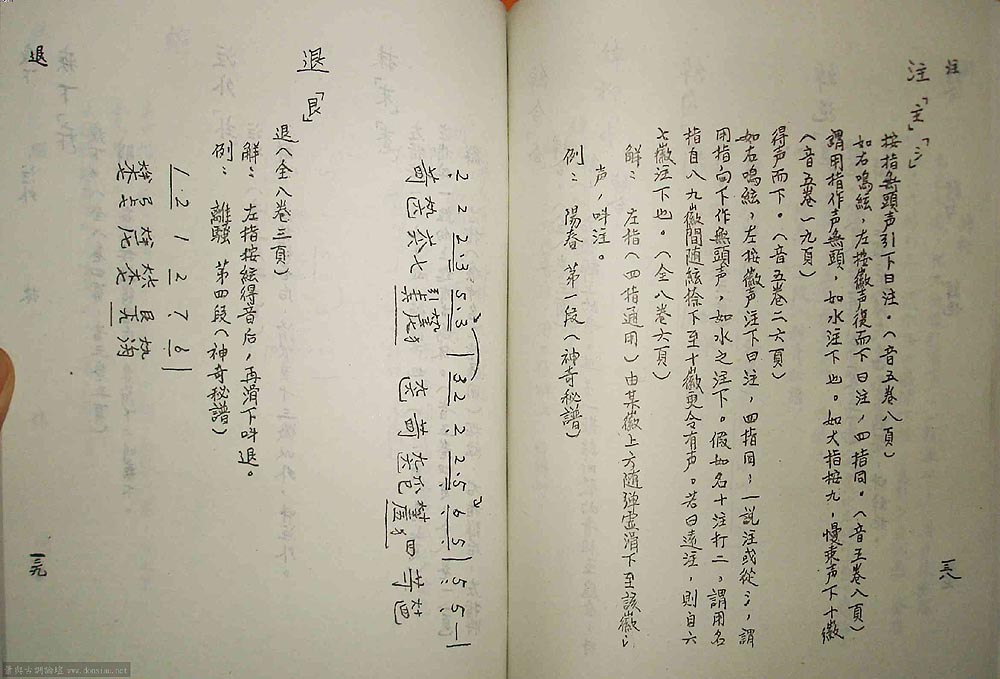 注
注「主」「氵」
按指無頭声引下曰注。（音五卷八頁）
如右鳴絃，左按徽声復而下曰注，四指同。（音五卷八頁）
謂用指作声無頭，如水注下也。如大指按九，慢來声下十徽
（音五卷一九頁）
得声而下。（音五卷二六頁）
如右鳴絃，左按徽声注下曰注，四指同；一説注或從氵，謂
用指向下作無頭声，如水之注下。假如名十注打二，謂用名
指自八九徽間随絃徐下至十徽更令有声。若曰遠注，則自六
七徽注下也。（全八卷六頁）
解： 左指（四指通用）由某徽上方随弹虚滑下至該徽
声，呌注。
例： 陽春 第一段（神奇秘譜）
一三八
2· 2 2·3 5 3 | 3 2 2 2·5 6 5 | 5 5 — |
退「艮」
退（全八卷三頁）
解：（左指按絃得音后，再滑下呌退。
例： 離騷 第四段（神奇秘譜）
1·2 1 2 7 6 |
退
一三九
www.donsiau.net